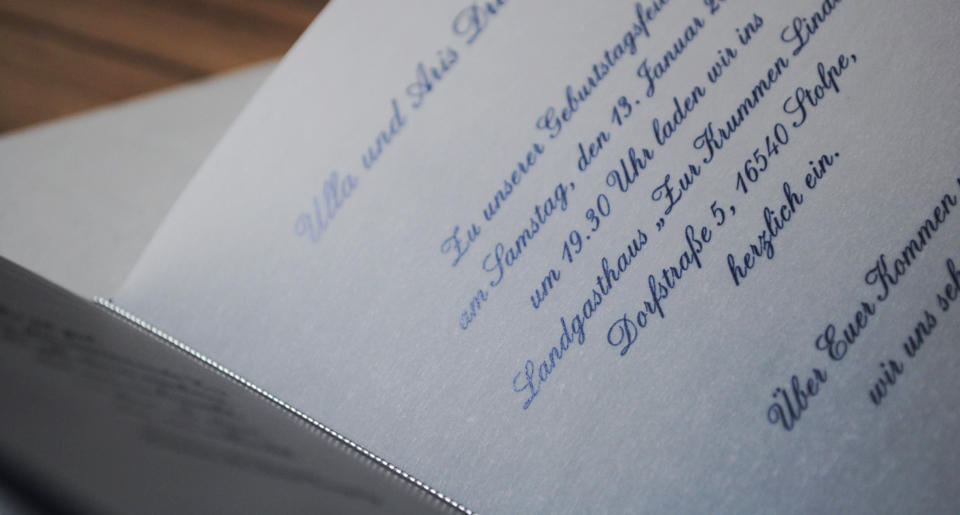 Ulla und Aris
Zu unserer
am Samstag, den 13. Januar
um 19.30 Uhr laden wir ins
Landgasthaus „Zur Krummen
Dorfstraße 5, 16540 Stolpe,
herzlich ein.
Über Euer Kommen
wir uns